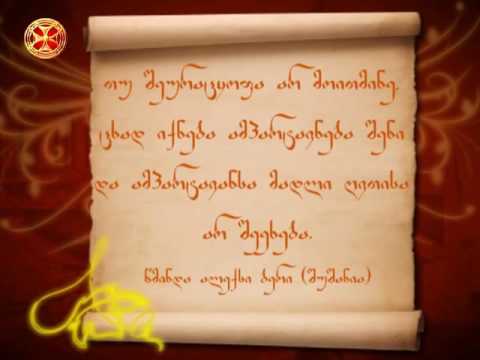 თუ შეურაცყოფა არ მოითმინე,
ცხად იქნება ამპარტავნება შენი
და ამპარტავანსა მადლი ღვთისა
არ შეეხება.
წმინდა ალექსი ბერი (შუშანია)